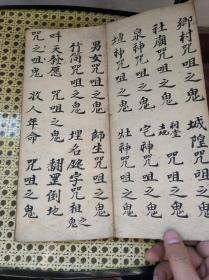 鄉村咒咀之鬼 城隍咒咀之鬼
社廟咒咀之鬼
泉神咒咀之鬼 宅神咒咀之鬼
壇神咒咀之鬼 灶神咒咀之鬼
男女咒咀之鬼 師生咒咀之鬼
竹筒咒咀之鬼 埋名錄字咒咀之鬼
吁天發愿 咒咀之鬼 翻罡倒地
咒之咀鬼 收人年命 咒咀之鬼